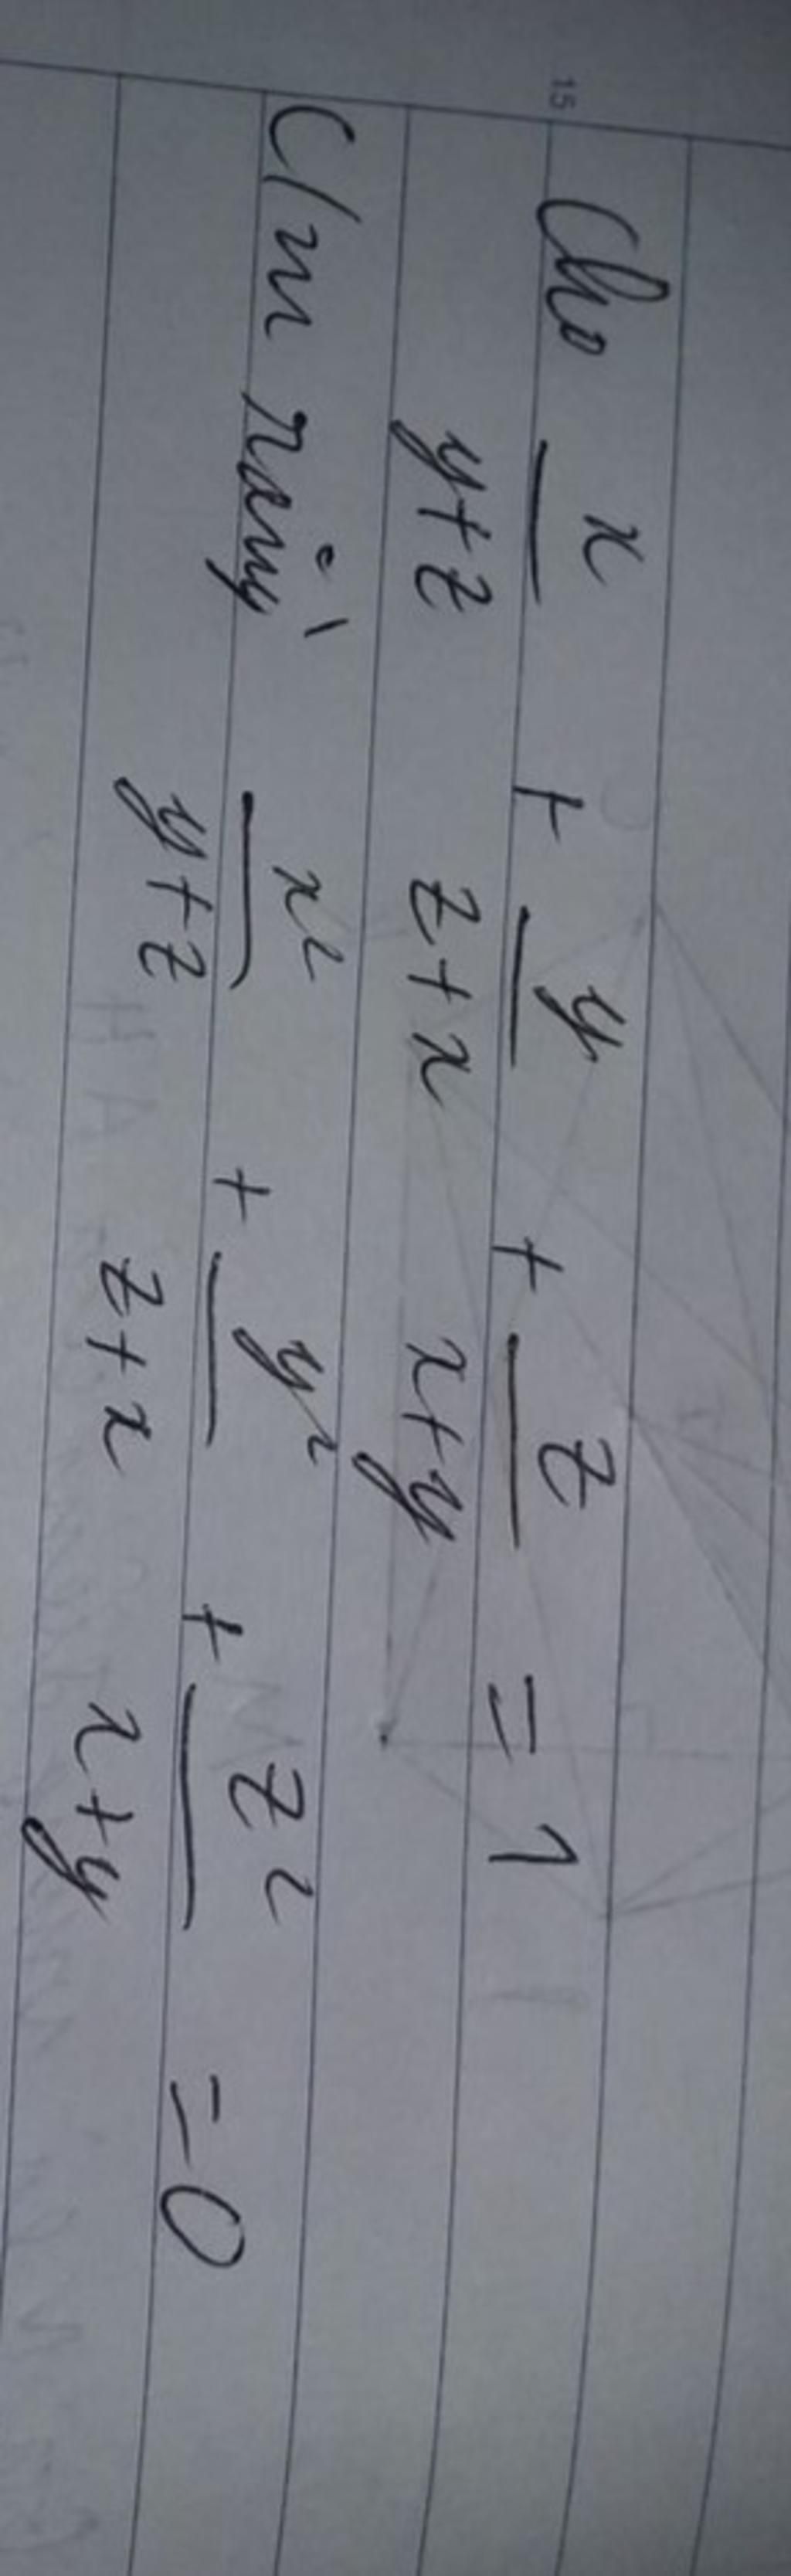 15
Cho x/(y+z) + y/(z+x) + z/(x+y) = 1
C/m rằng x²/(y+z) + y²/(z+x) + z²/(x+y) = 0